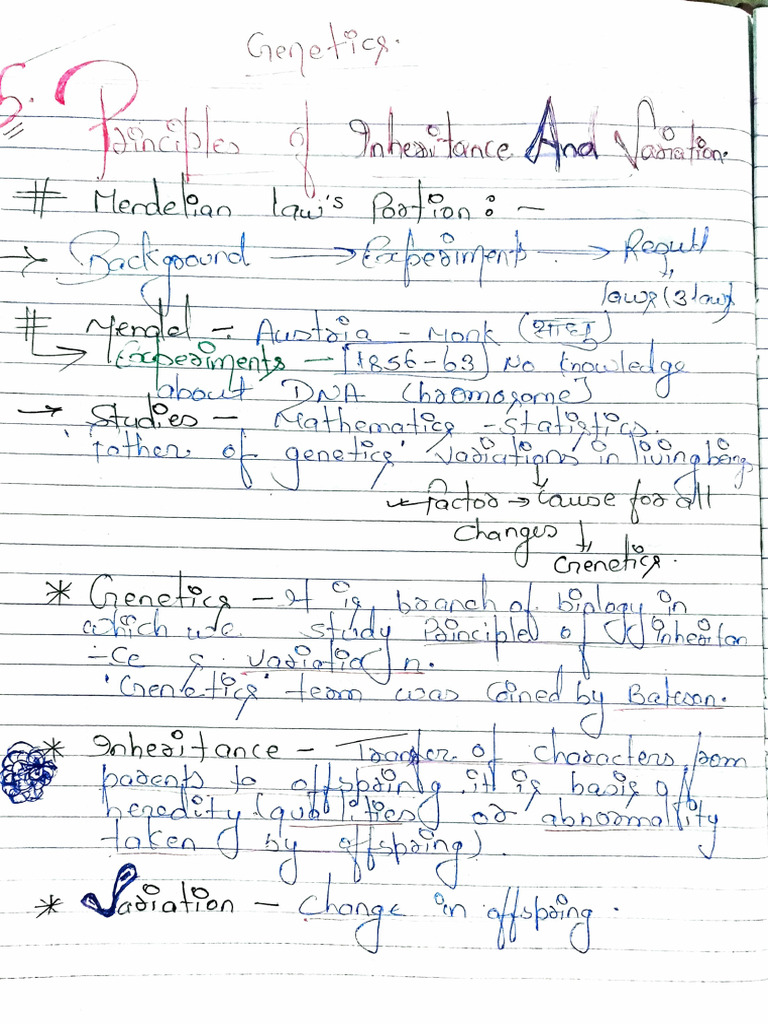 Genetics.
5. Principles of Inheritance And Variation.
# Mendelian law's Portion : -
→ Background → Experiments → Result
laws (3 law)
# Mendel :- Austria - Monk (साधु)
→ Experiments - [1856-63] No knowledge
about DNA (chromosome]
→ Studies - Mathematics - Statistics.
'father of genetics' variations in living beings
Factor → cause for all
changes
Genetics.
* Genetics - It is branch of biology in
which we study Principles of Inheritan
-ce & variation.
'Genetics' team was coined by Bateson.
* Inheritance - Transfer of characters from
parents to offspring. it is basis of
heredity (qualities or abnormality
taken by offspring).
* Variation - Change in offspring.